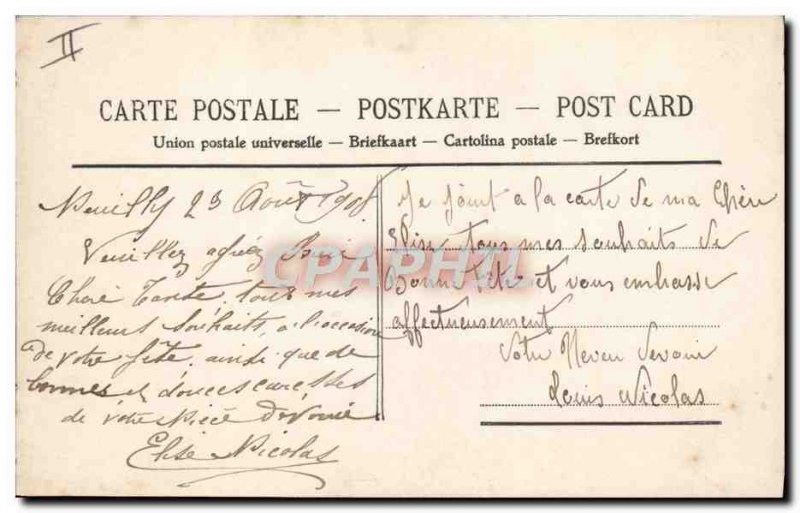 II
CARTE POSTALE — POSTKARTE — POST CARD
Union postale universelle — Briefkaart — Cartolina postale — Brefkort
Neuilly 23 Août 1908
Veuillez agréez Bonne
Chère Tante, tous mes
meilleurs souhaits, a l'occasion
de votre fête, ainsi que de
bonnes et douces caresses
de votre Nièce dévouée
Elise Nicolas
Je joint a la carte de ma Chère
Elise tous mes souhaits de
Bonne fête et vous embrasse
affectueusement
Votre Neveu Devoué
Louis Nicolas
CPAPHIL